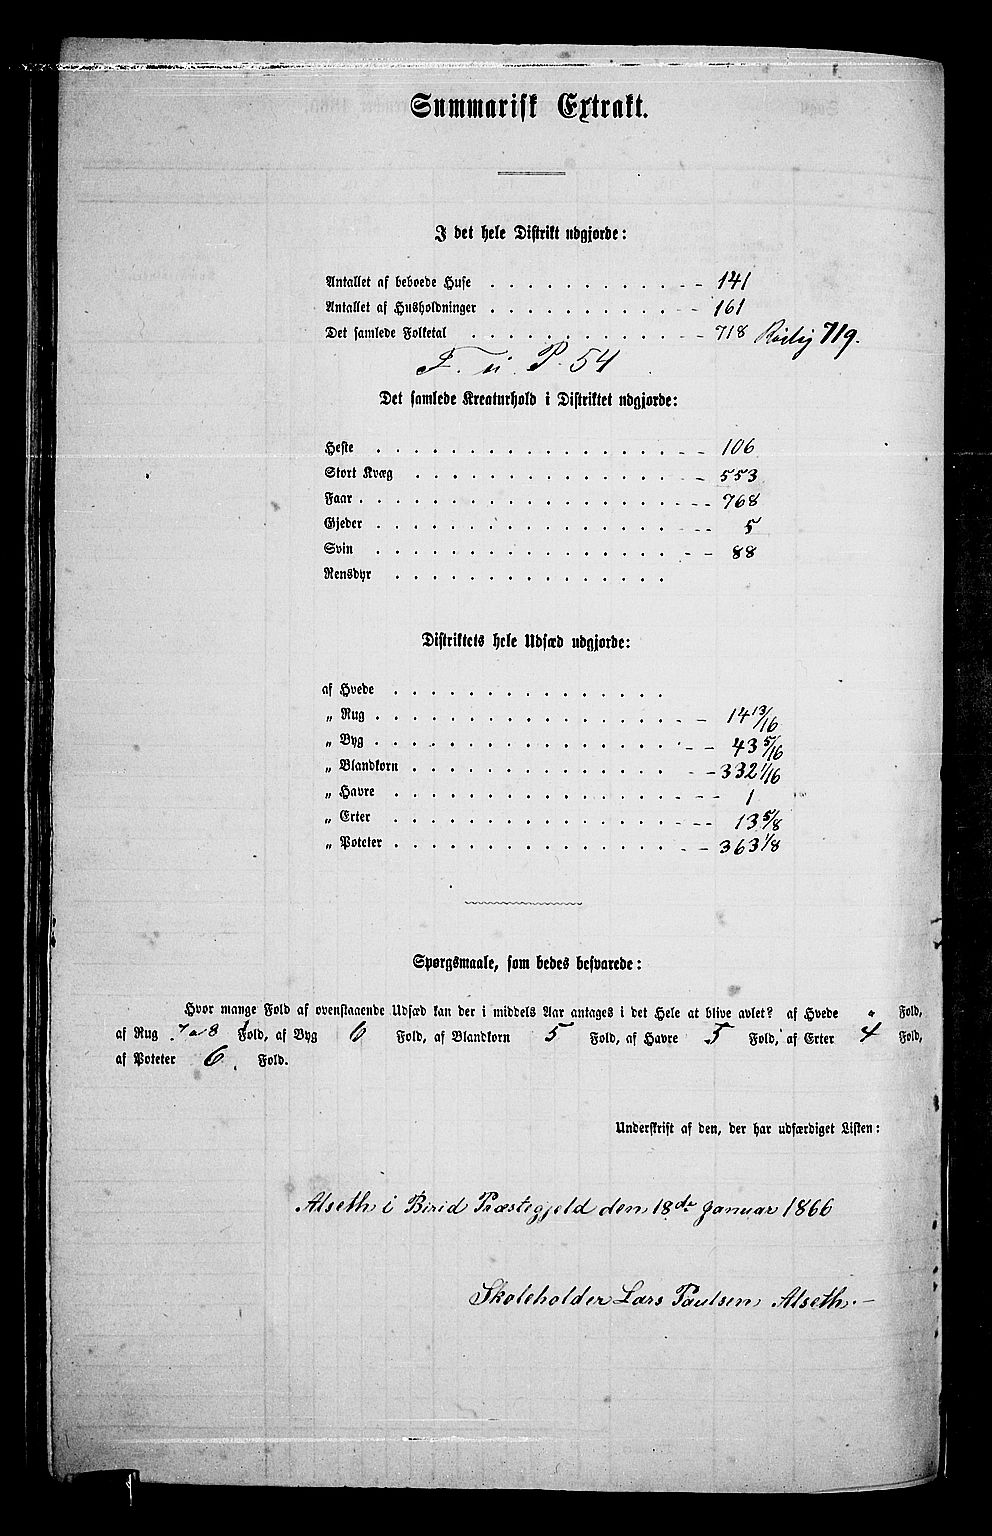 Summarisk Extrakt.
I det hele Distrikt udgjorde:
Antallet af beboede Huse . . . . . . . . . . . . -- 141
Antallet af Husholdninger . . . . . . . . . . . -- 161
Det samlede Folketal . . . . . . . . . . . . -- 718 Rigtig 719.
F. u. P. 54
Det samlede Kreaturhold i Distriktet udgjorde:
Heste . . . . . . . . . . . . . . . . -- 106
Stort Kvæg . . . . . . . . . . . . . . -- 553
Faar . . . . . . . . . . . . . . . . . -- 768
Gjeder . . . . . . . . . . . . . . . . -- 5
Svin . . . . . . . . . . . . . . . . -- 88
Rensdyr . . . . . . . . . . . . . . .
Distriktets hele Udsæd udgjorde:
af Hvede . . . . . . . . . . . . . . .
„ Rug . . . . . . . . . . . . . . . . -- 14 13/16
„ Byg . . . . . . . . . . . . . . . . -- 43 5/16
„ Blandkorn . . . . . . . . . . . . . . -- 332 1/16
„ Havre . . . . . . . . . . . . . . . -- 1
„ Erter . . . . . . . . . . . . . . . -- 13 5/8
„ Poteter . . . . . . . . . . . . . . . -- 363 1/8
Spørgsmaale, som bedes besvarede:
Hvor mange Fold af ovenstaaende Udsæd kan der i middels Aar antages i det Hele at blive avlet? af Hvede " Fold,
af Rug 7 a 8 Fold, af Byg 6 Fold, af Blandkorn 5 Fold, af Havre 5 Fold, af Erter 4 Fold,
af Poteter 6. Fold.
Underskrift af den, der har udfærdiget Listen:
Alseth i Birid Præstegjeld den 18de Januar 1866
Skoleholder Lars Paulsen Alseth.—